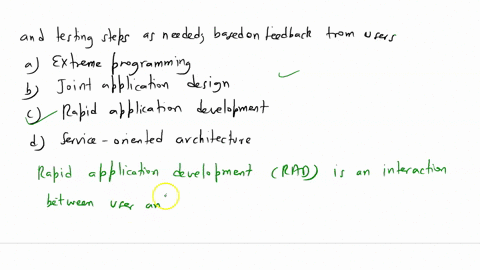 and testing steps as needed, based on feedback from users
a) Extreme programming
b) Joint application design
c) Rapid application development
d) Service-oriented architecture
Rapid application development (RAD) is an interaction
between user an